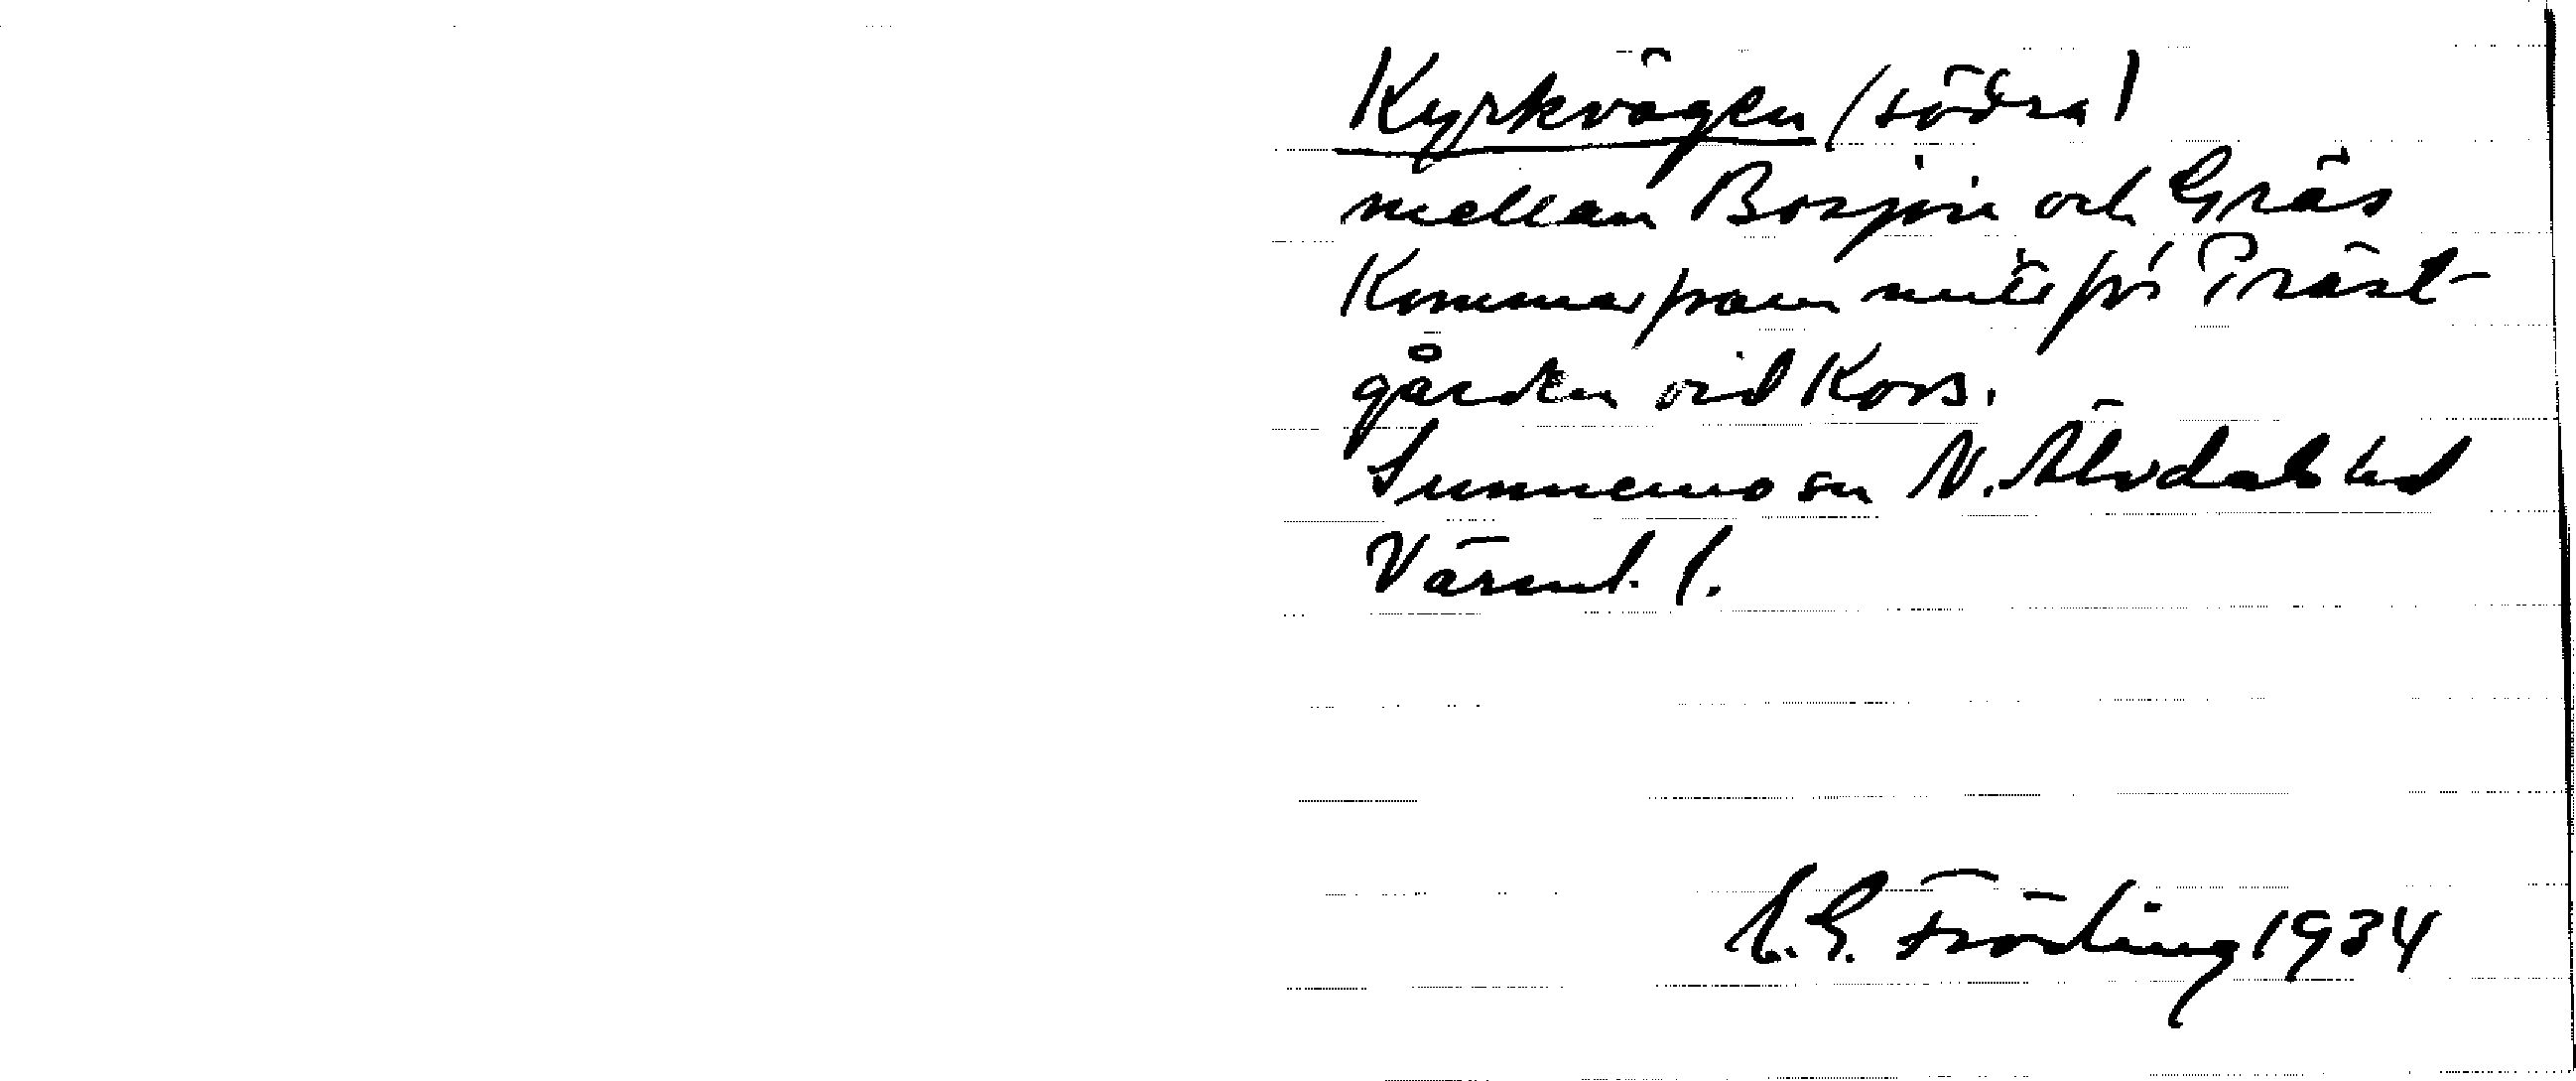 Kyrkvägen (södra)
mellan Bosjön och Gräs
Kommer fram mitt för Präst-
gården vid Kors.
Sunnemo sn N. Älvdals hd
Värml. l.
E. G. Fröding 1934